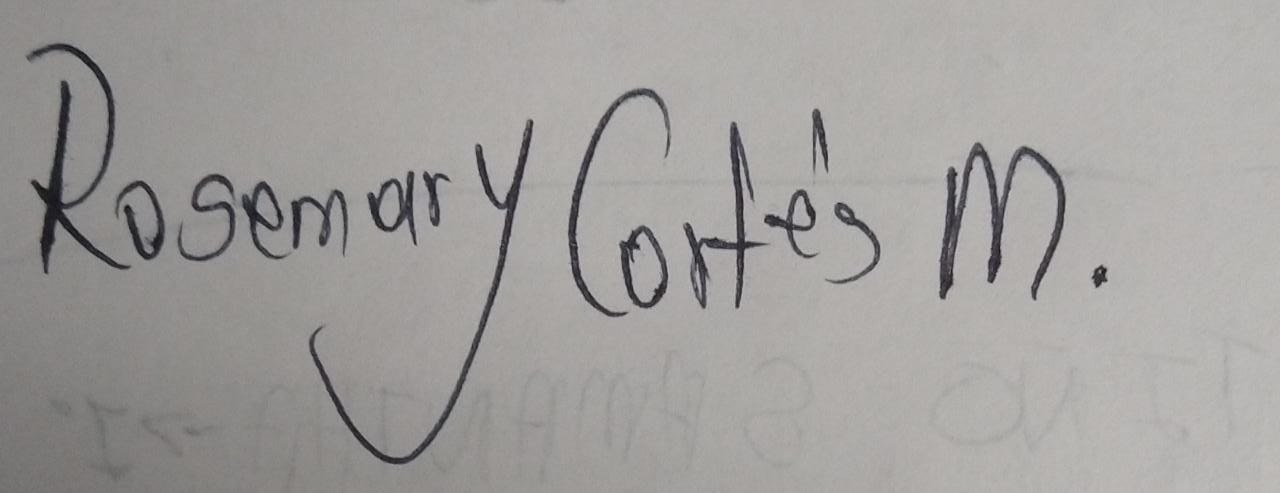 Rosemary Cortés M.